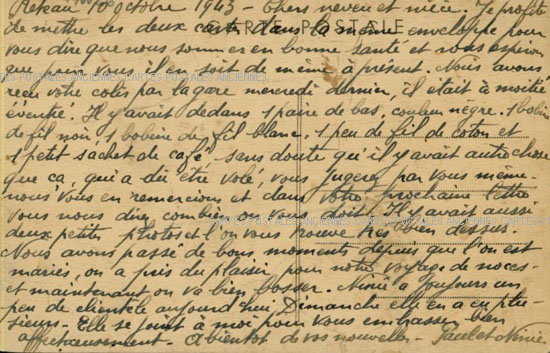 10 octobre 1943 - Chers neveu et nièce. Je profite
CARTE POSTALE
de mettre les deux cartes dans la même enveloppe pour
vous dire que nous sommes en bonne santé et nous espérons
que pour vous il en soit de même à présent. Nous avons
reçu votre colis par la gare mercredi dernier, il était à moitié
éventré. Il y avait dedans 1 paire de bas, couleur nègre. 1 bobine
de fil noir, 1 bobine de fil blanc, 1 peu de fil de coton et
1 petit sachet de café, sans doute qu'il y avait autre chose
que ça, qui a dû être volé, vous jugerez par vous même.
nous vous en remercions et dans votre prochaine lettre
vous nous direz combien on vous doit. Il y avait aussi
deux petites photos et l'on vous trouve très bien dessus.
Nous avons passé de bons moments depuis que l'on est
mariés, on a pris du plaisir pour notre voyage de noces -
et maintenant on va bien bosser. Ninie a toujours un
peu de clientèle aujourd'hui Dimanche elle en a eu plu-
sieurs - Elle se joint à moi pour vous embrasser bien
affectueusement - A bientôt de vos nouvelles - Paul et Ninie